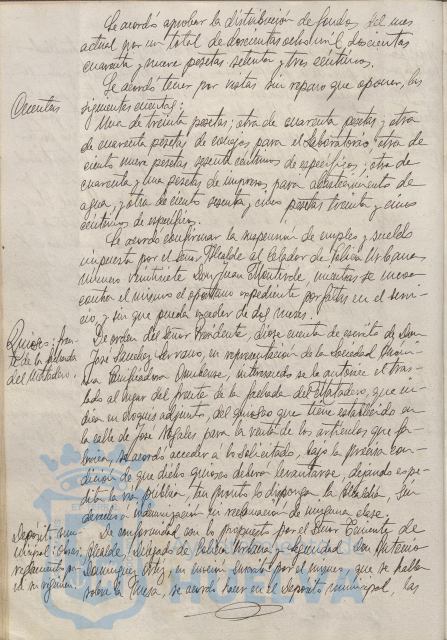 Se acordó aprobar la distribución de fondos del mes
actual por un total de doscientas ocho mil, doscientas
cuarenta y nueve pesetas setenta y tres centimos.
Se acordó tener por vistas sin reparo que oponer, las
Cuentas
siguientes cuentas:
Una de treinta pesetas; otra de cuarenta pesetas y otra
de cuarenta pesetas de conejos para el Laboratorio; otra de
ciento nueve pesetas sesenta centimos de especificos; otra de
cuarenta y una pesetas de impresos para abastecimiento de
agua, y otra de ciento sesenta y cinco pesetas treinta y cinco
centimos de especificos.
Se acordó confirmar la suspension de empleo y sueldo
impuesta por el Señor Alcalde al Celador de Policia Urbana
número veintisiete Don Juan Monteverde, mientras se incoa
contra el mismo el oportuno expediente por faltas en el servi-
cio, y sin que pueda exceder de dos meses.
Quiosco: fren-
te de la fachada
del Matadero.
De orden del Señor Presidente, diose cuenta de escrito de Don
Jose Sanchez Serrano, en representación de la Sociedad
Panificadora Onubense, interesando se le autorice el tras-
lado al lugar del frente de la fachada del Matadero, que in-
dica en croquis adjunto, del quiosco que tiene establecido en
la calle de Jose Nogales para la venta de los articulos que fa-
brica, se acordo acceder a lo solicitado, bajo la precisa con-
dición de que dicho quiosco deberá levantarse, dejando expe-
dita la via publica, tan pronto lo disponga la Alcaldia, sin
derecho a indemnización ni reclamación de ninguna clase.
Depósito mu-
nicipal: obras
en su regimen.
De conformidad con lo propuesto por el Señor Teniente de
Alcalde, Delegado de Policia Urbana y Seguridad Don Antonio
Dominguez Ortiz, en mocion suscrita por el mismo, que se halla
sobre la Mesa, se acordó hacer en el Depósito municipal, las
HUELVA